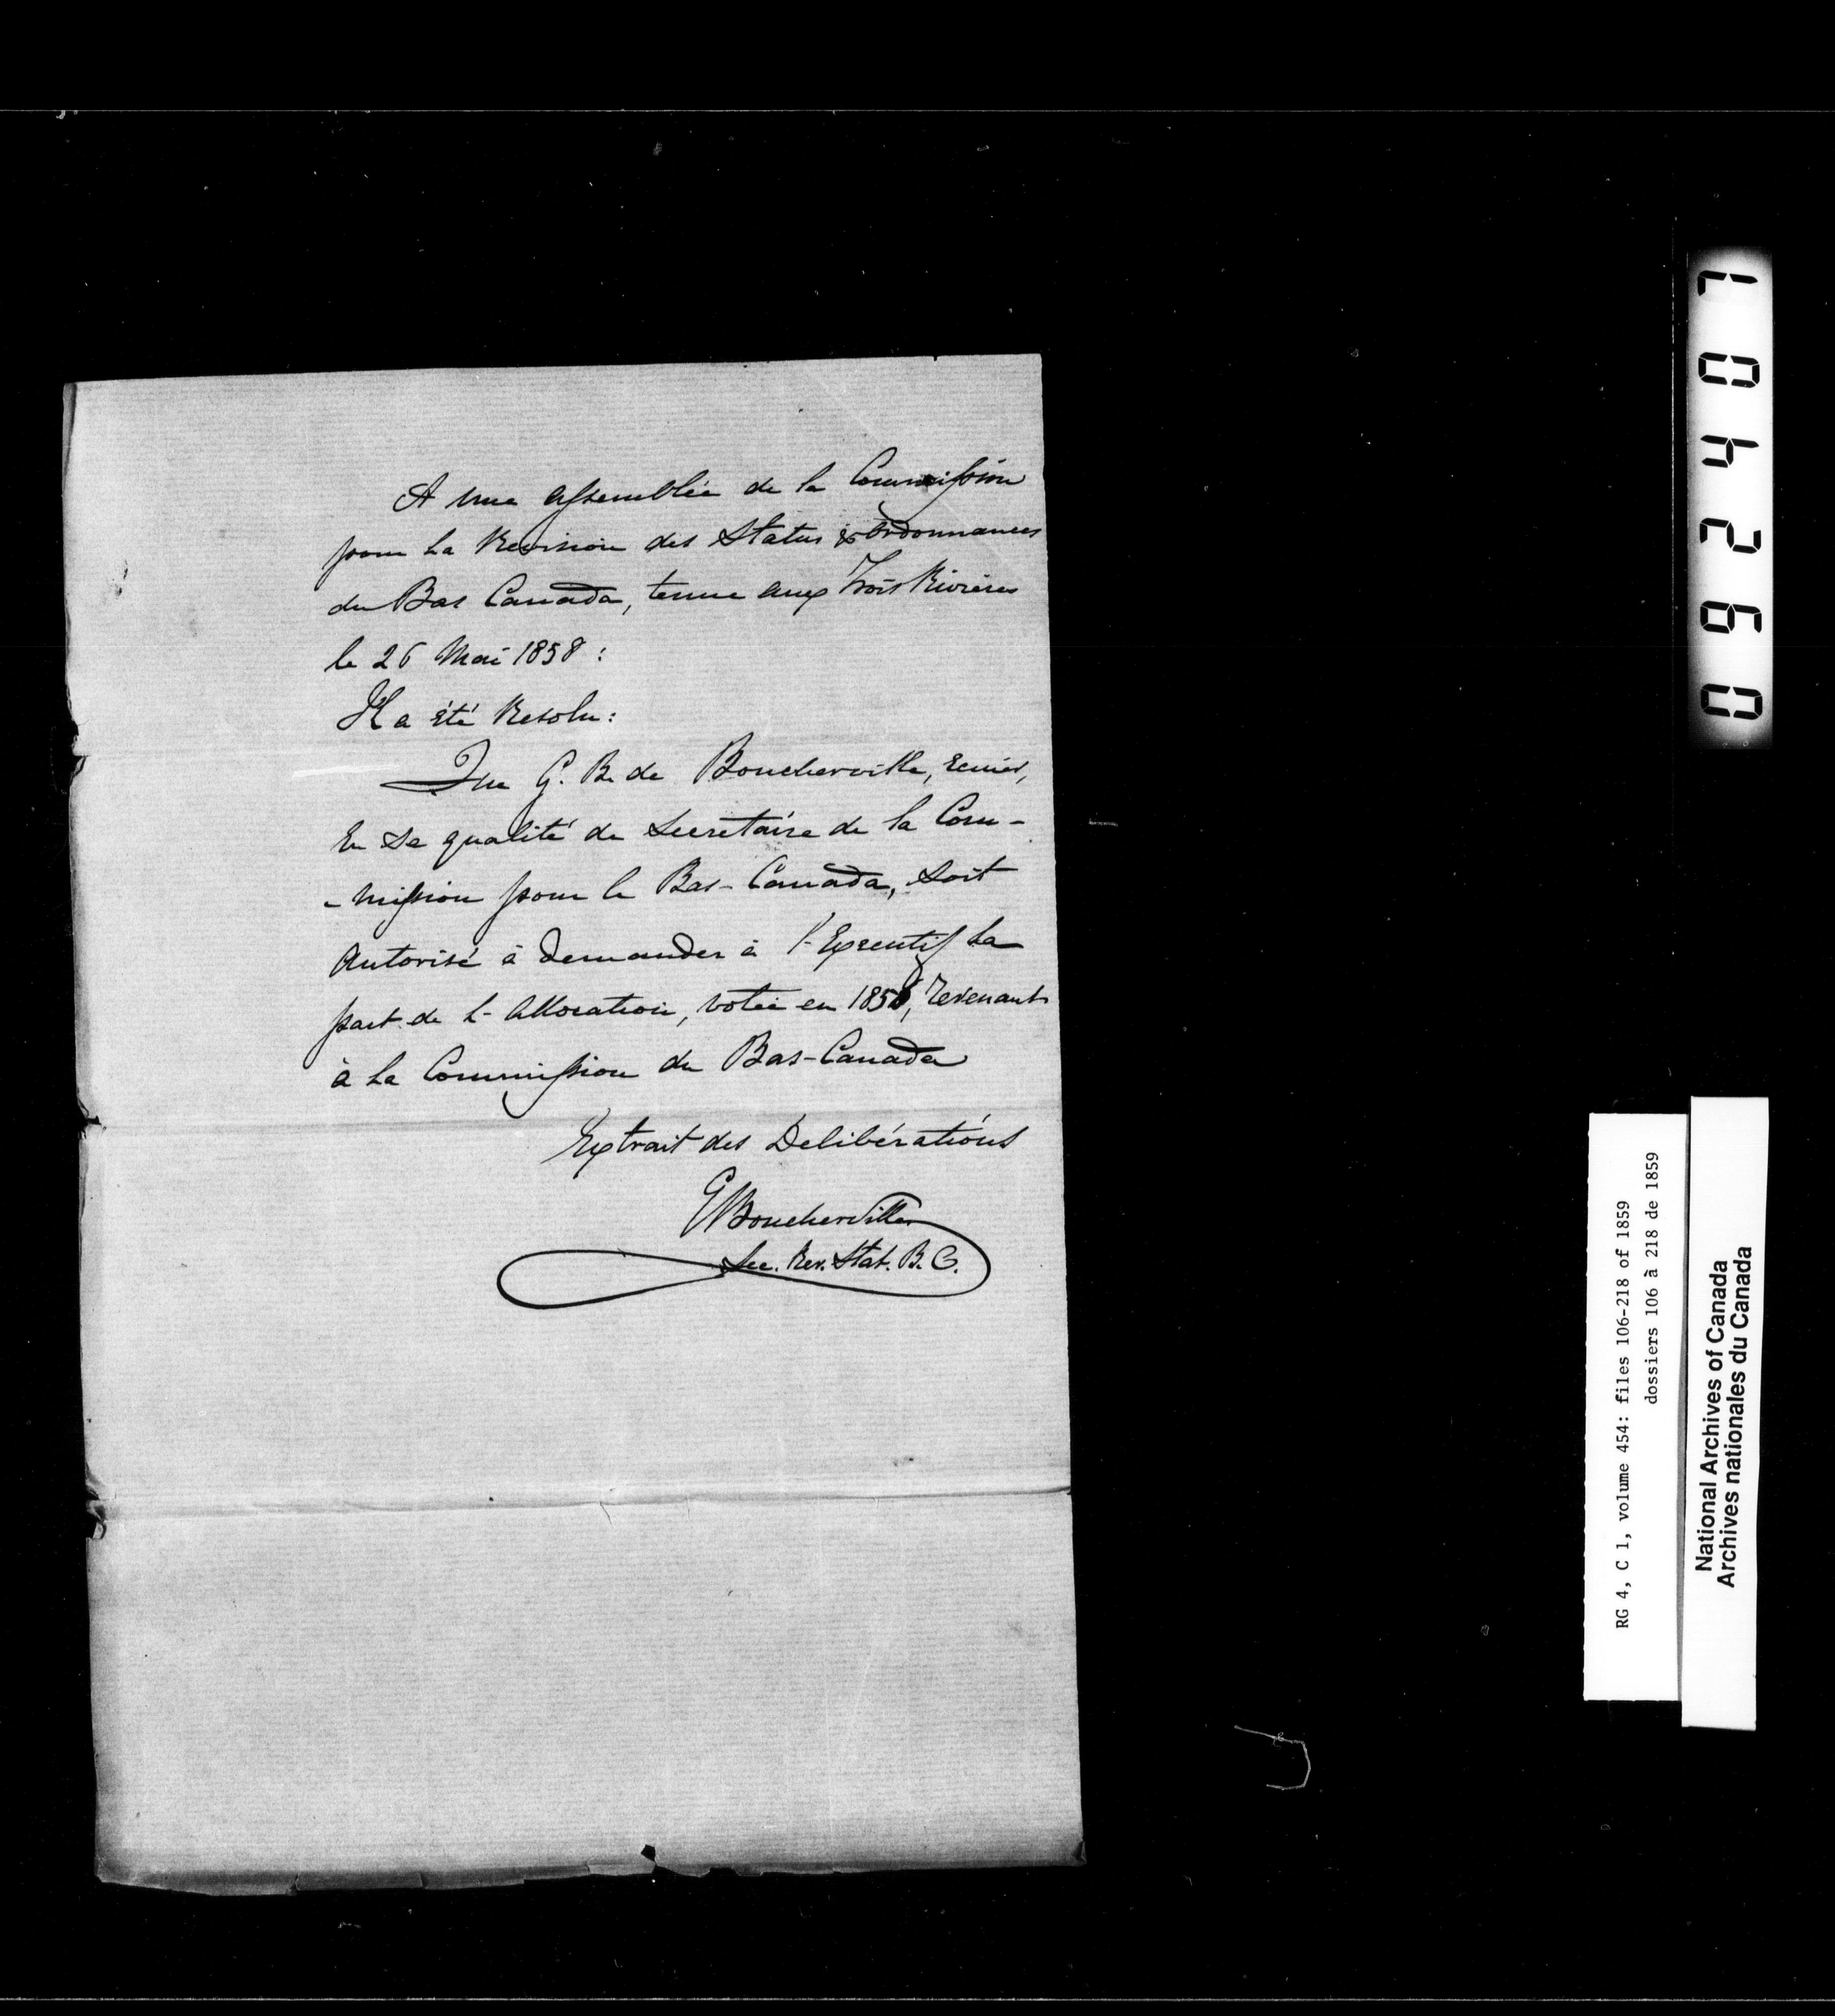 A une assemblée de la Commission
pour la Revision des Status & Ordonnances
du Bas Canada, tenue aux Trois Rivières
le 26 Mai 1858 :
Il a été Resolu :
Que G. B. de Boucherville, Ecuier,
En sa qualité de Secretaire de la Com-
-mission pour le Bas-Canada, soit
Autorisé à demander à l'Executif la
part de l'Allocation, votée en 1858, revenant
à la Commission du Bas-Canada
Extrait des Delibérations
GBoucherville
Sec. Rev. Stat. B. C.
062401
RG 4, C 1, volume 454: files 106-218 of 1859
dossiers 106 à 218 de 1859
National Archives of Canada
Archives nationales du Canada